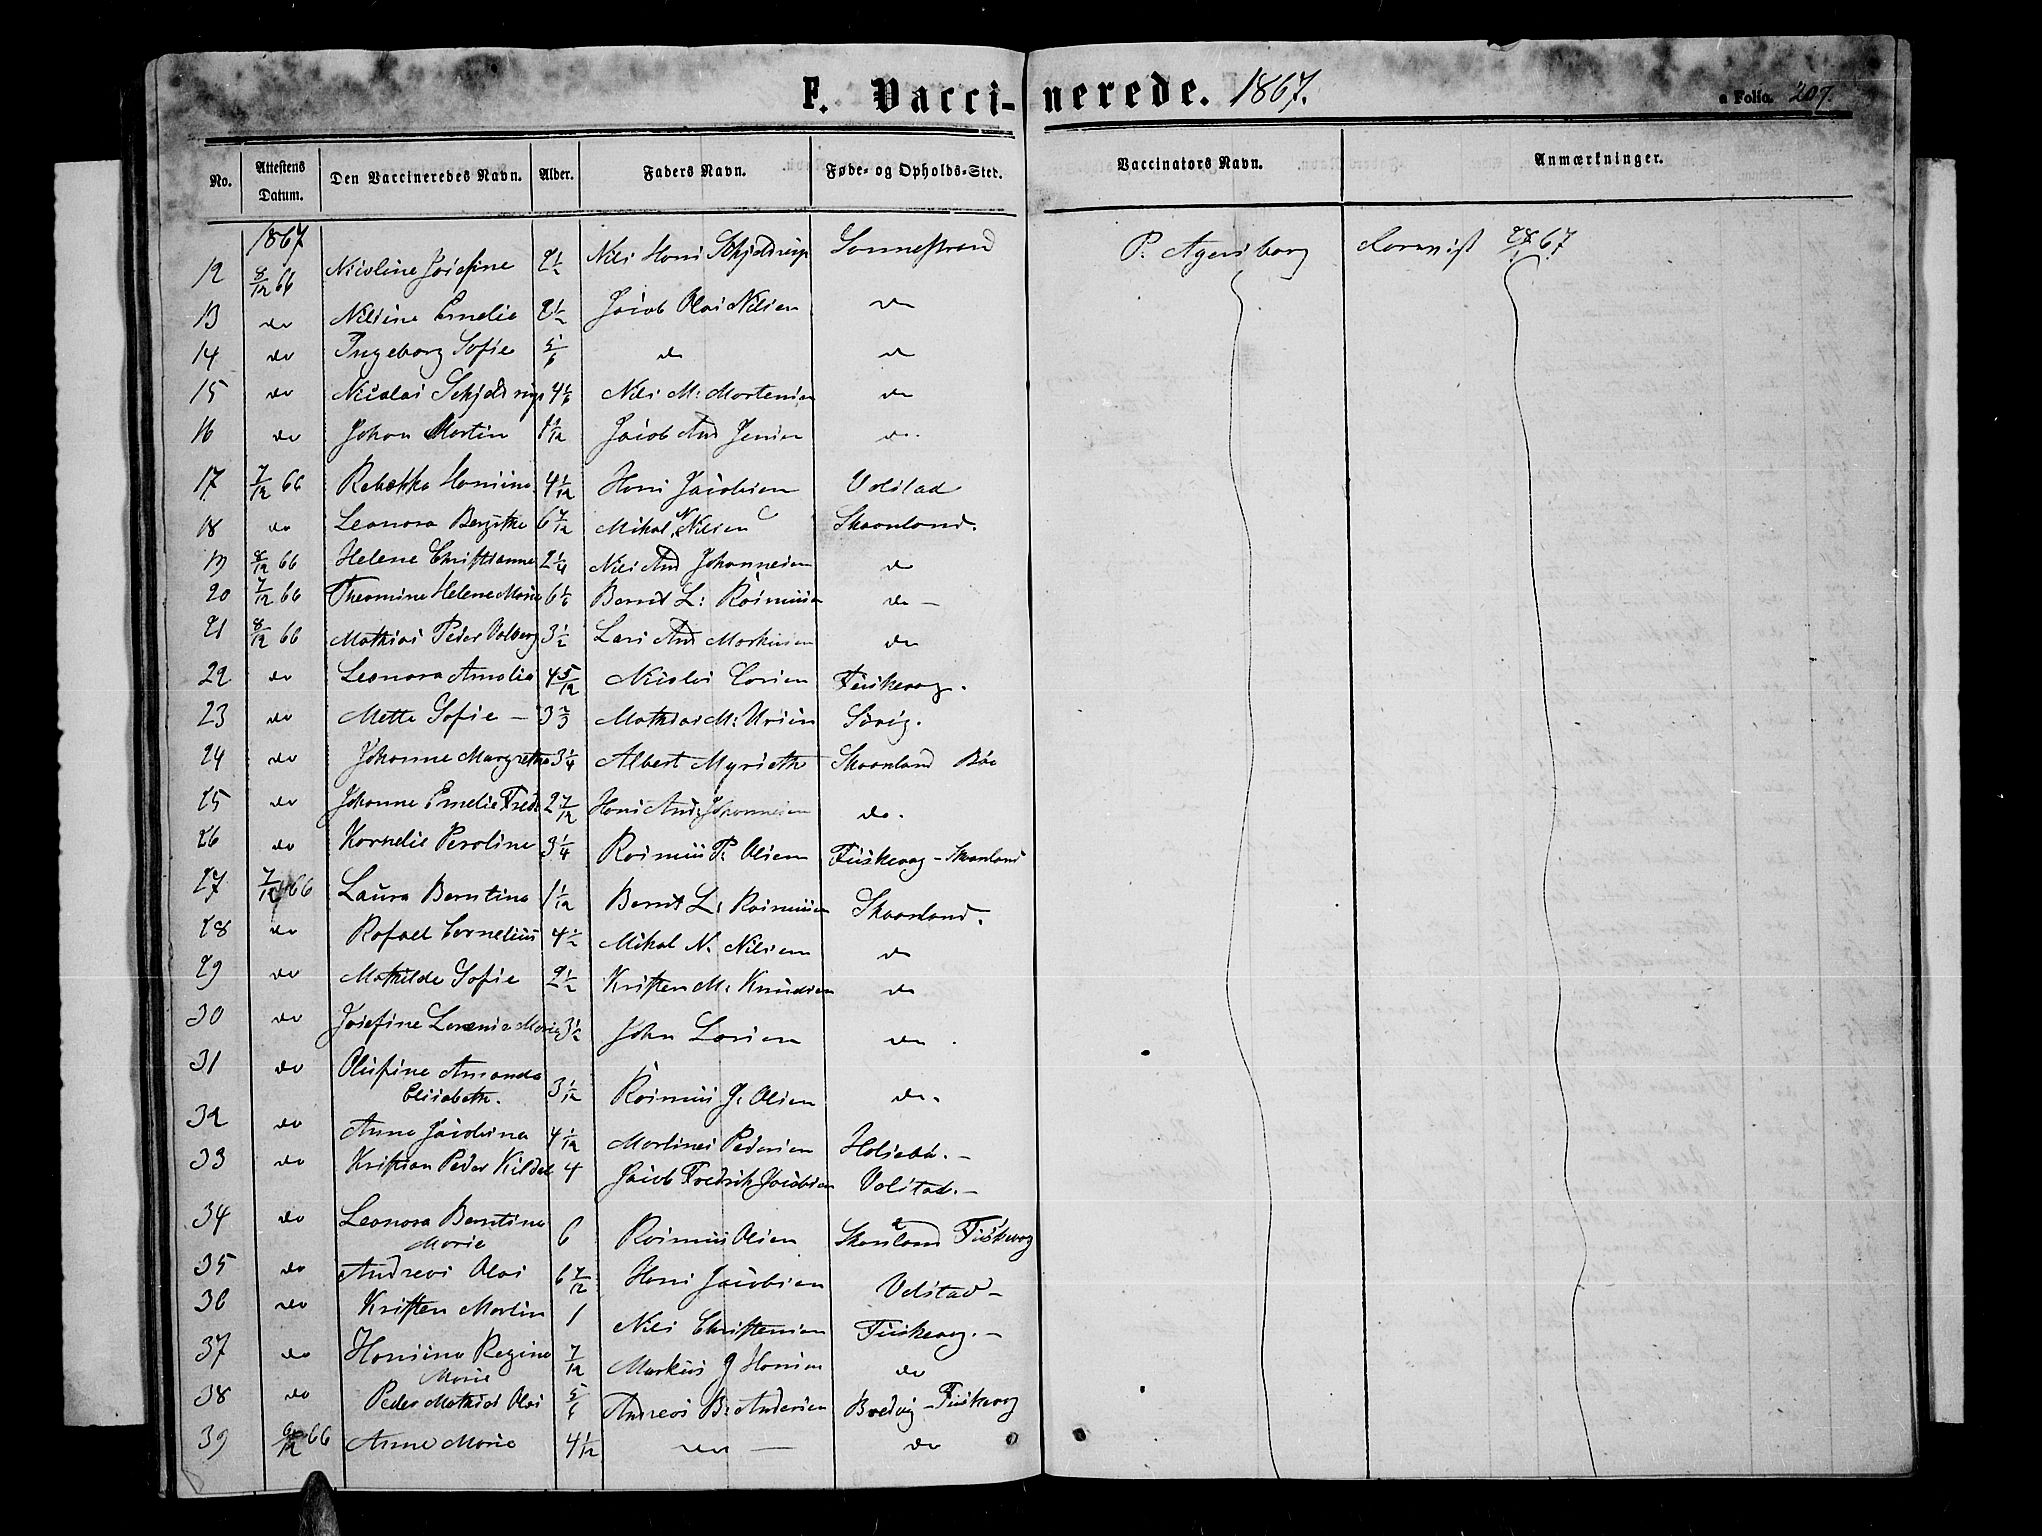 F. Vaccinerede. 1867.
a Folio. 207.
No. Attestens Datum. Den Vaccineredes Navn. Alder. Faders Navn. Føde- og Opholds-Sted. Vaccinators Navn. Anmærkninger.
1867
12 8/12 66 Nicoline Josefine 2 1/2 Nils Hans Schjelderup Sannestrand P. Agersborg 67
13 do Nilsine Emelie 2 1/2 Jacob Olai Nilsen do
14 do Ingeborg Sofie 5/6 do do
15 do Nicolai Schjeldrup 4 1/6 Nils M: Mortensen do
16 do Johan Martin 1 11/12 Jacob And Jensen do.
17 7/12 66 Rebekka Hansine 4 1/12 Hans Jacobsen Volstad
18 do Leonora Bergitte 6 7/12 Mikal N Nilsen Skaanland.
19 8/12 66 Helene Christianne 2 1/4 Nils And Johannesen do
20 7/12 66 Thermine Helene Marie 6 1/6 Bernt L: Rasmusen do —
21 8/12 66 Mathias Peder Volberg 3 1/2 Lars And Markusen do
22 do Leonora Amalie 4 5/12 Nicolai Larsen Fiskevag.
23 do Mette Sofie — 3 2/3 Mathias M: Ursin Sørvig.
24 do Johanne Margrethe 3 1/4 Albert Myrseth Skaanland Bøe
25 do Johanne Emelie Fredr 2 7/12 Hans And: Johannesen do.
26 do Kornelie Peroline 3 1/4 Rasmus P: Olsen Fiskevag – Skaanland
27 7/12 66 Laura Berntine 1 1/12 Bernt L: Rasmusen Skaanland.
28 do Rafael Cornelius 4 1/2 Mikal N. Nilsen do
29 do Mathilde Sofie 2 1/2 Kristen M: Knudsen do
30 do Josefine Lorensa Marie 3 1/2 John Larsen do
31 do Olufine Amanda
Elisabeth. 3 1/12 Rasmus J: Olsen do.
32 do Anne Jacobine 4 1/12 Martines Pedersen —
33 do Kristian Peder Kildal 4 Jacob Fredrik Jacobsen Volstad. —
34 do Leonora Berntine
Marie 6 Rasmus Olsen Skaanland Fiskevag
35 do Andreas Olai 6 7/12 Hans Jacobsen Volstad –
36 do Kristen Martin 1 Nils Christensen Fiskevag. –
37 do Hansine Regine
Marie 7/12 Markus J Hansen do
38 do Peder Mathias Olai 5/6 Andreas B: Andersen Bredvig – Fiskevag
39 12 66 Anne Marie 4 1/12 do — do